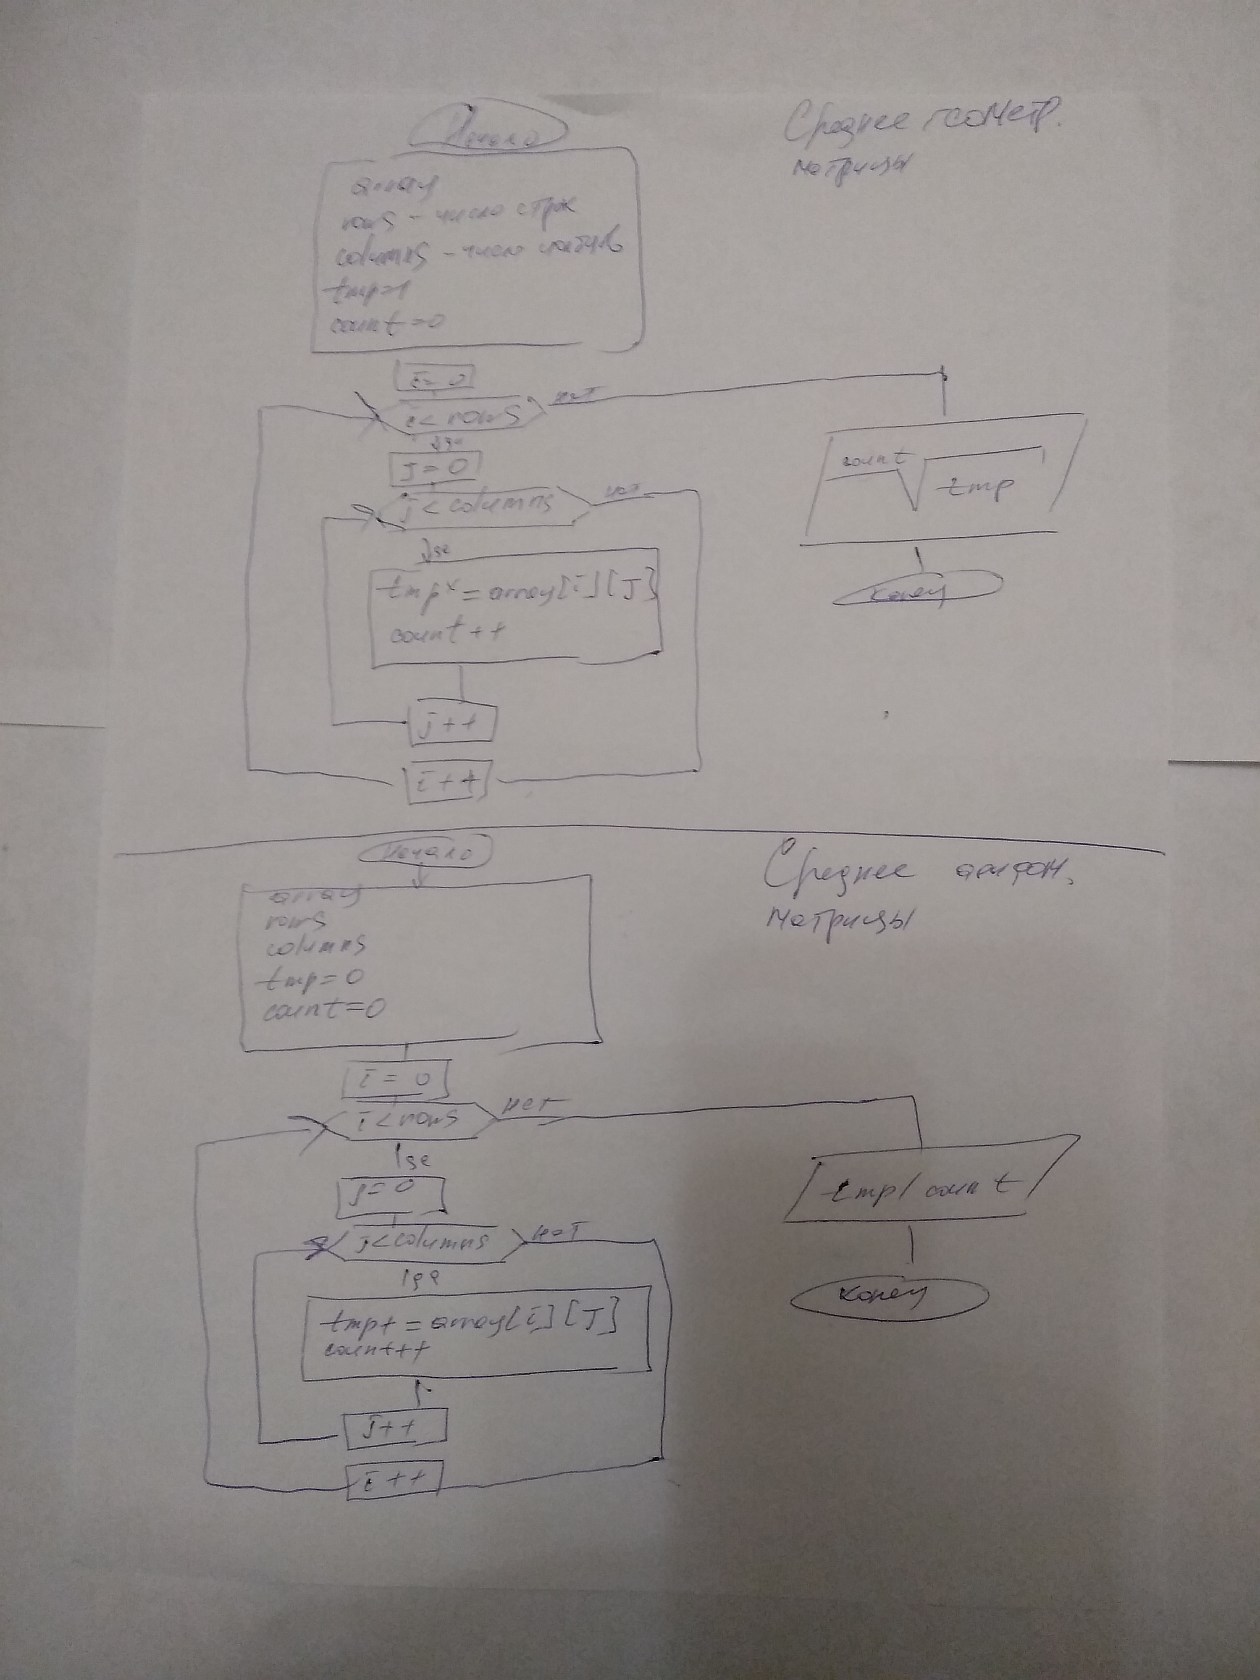 Начало
Среднее геометр.
матрицы
array
rows - число строк
columns - число столбцов
tmp=1
count=0
i=0
i < rows
нет
да
j=0
j < columns
нет
да
tmp* = array[i][j]
count++
j++
i++
count √ tmp
конец
Начало
Среднее
матрицы
array
rows
columns
tmp=0
count=0
i=0
i < rows
нет
да
j=0
j < columns
нет
да
tmp+ = array[i][j]
count++
j++
i++
tmp/count
конец